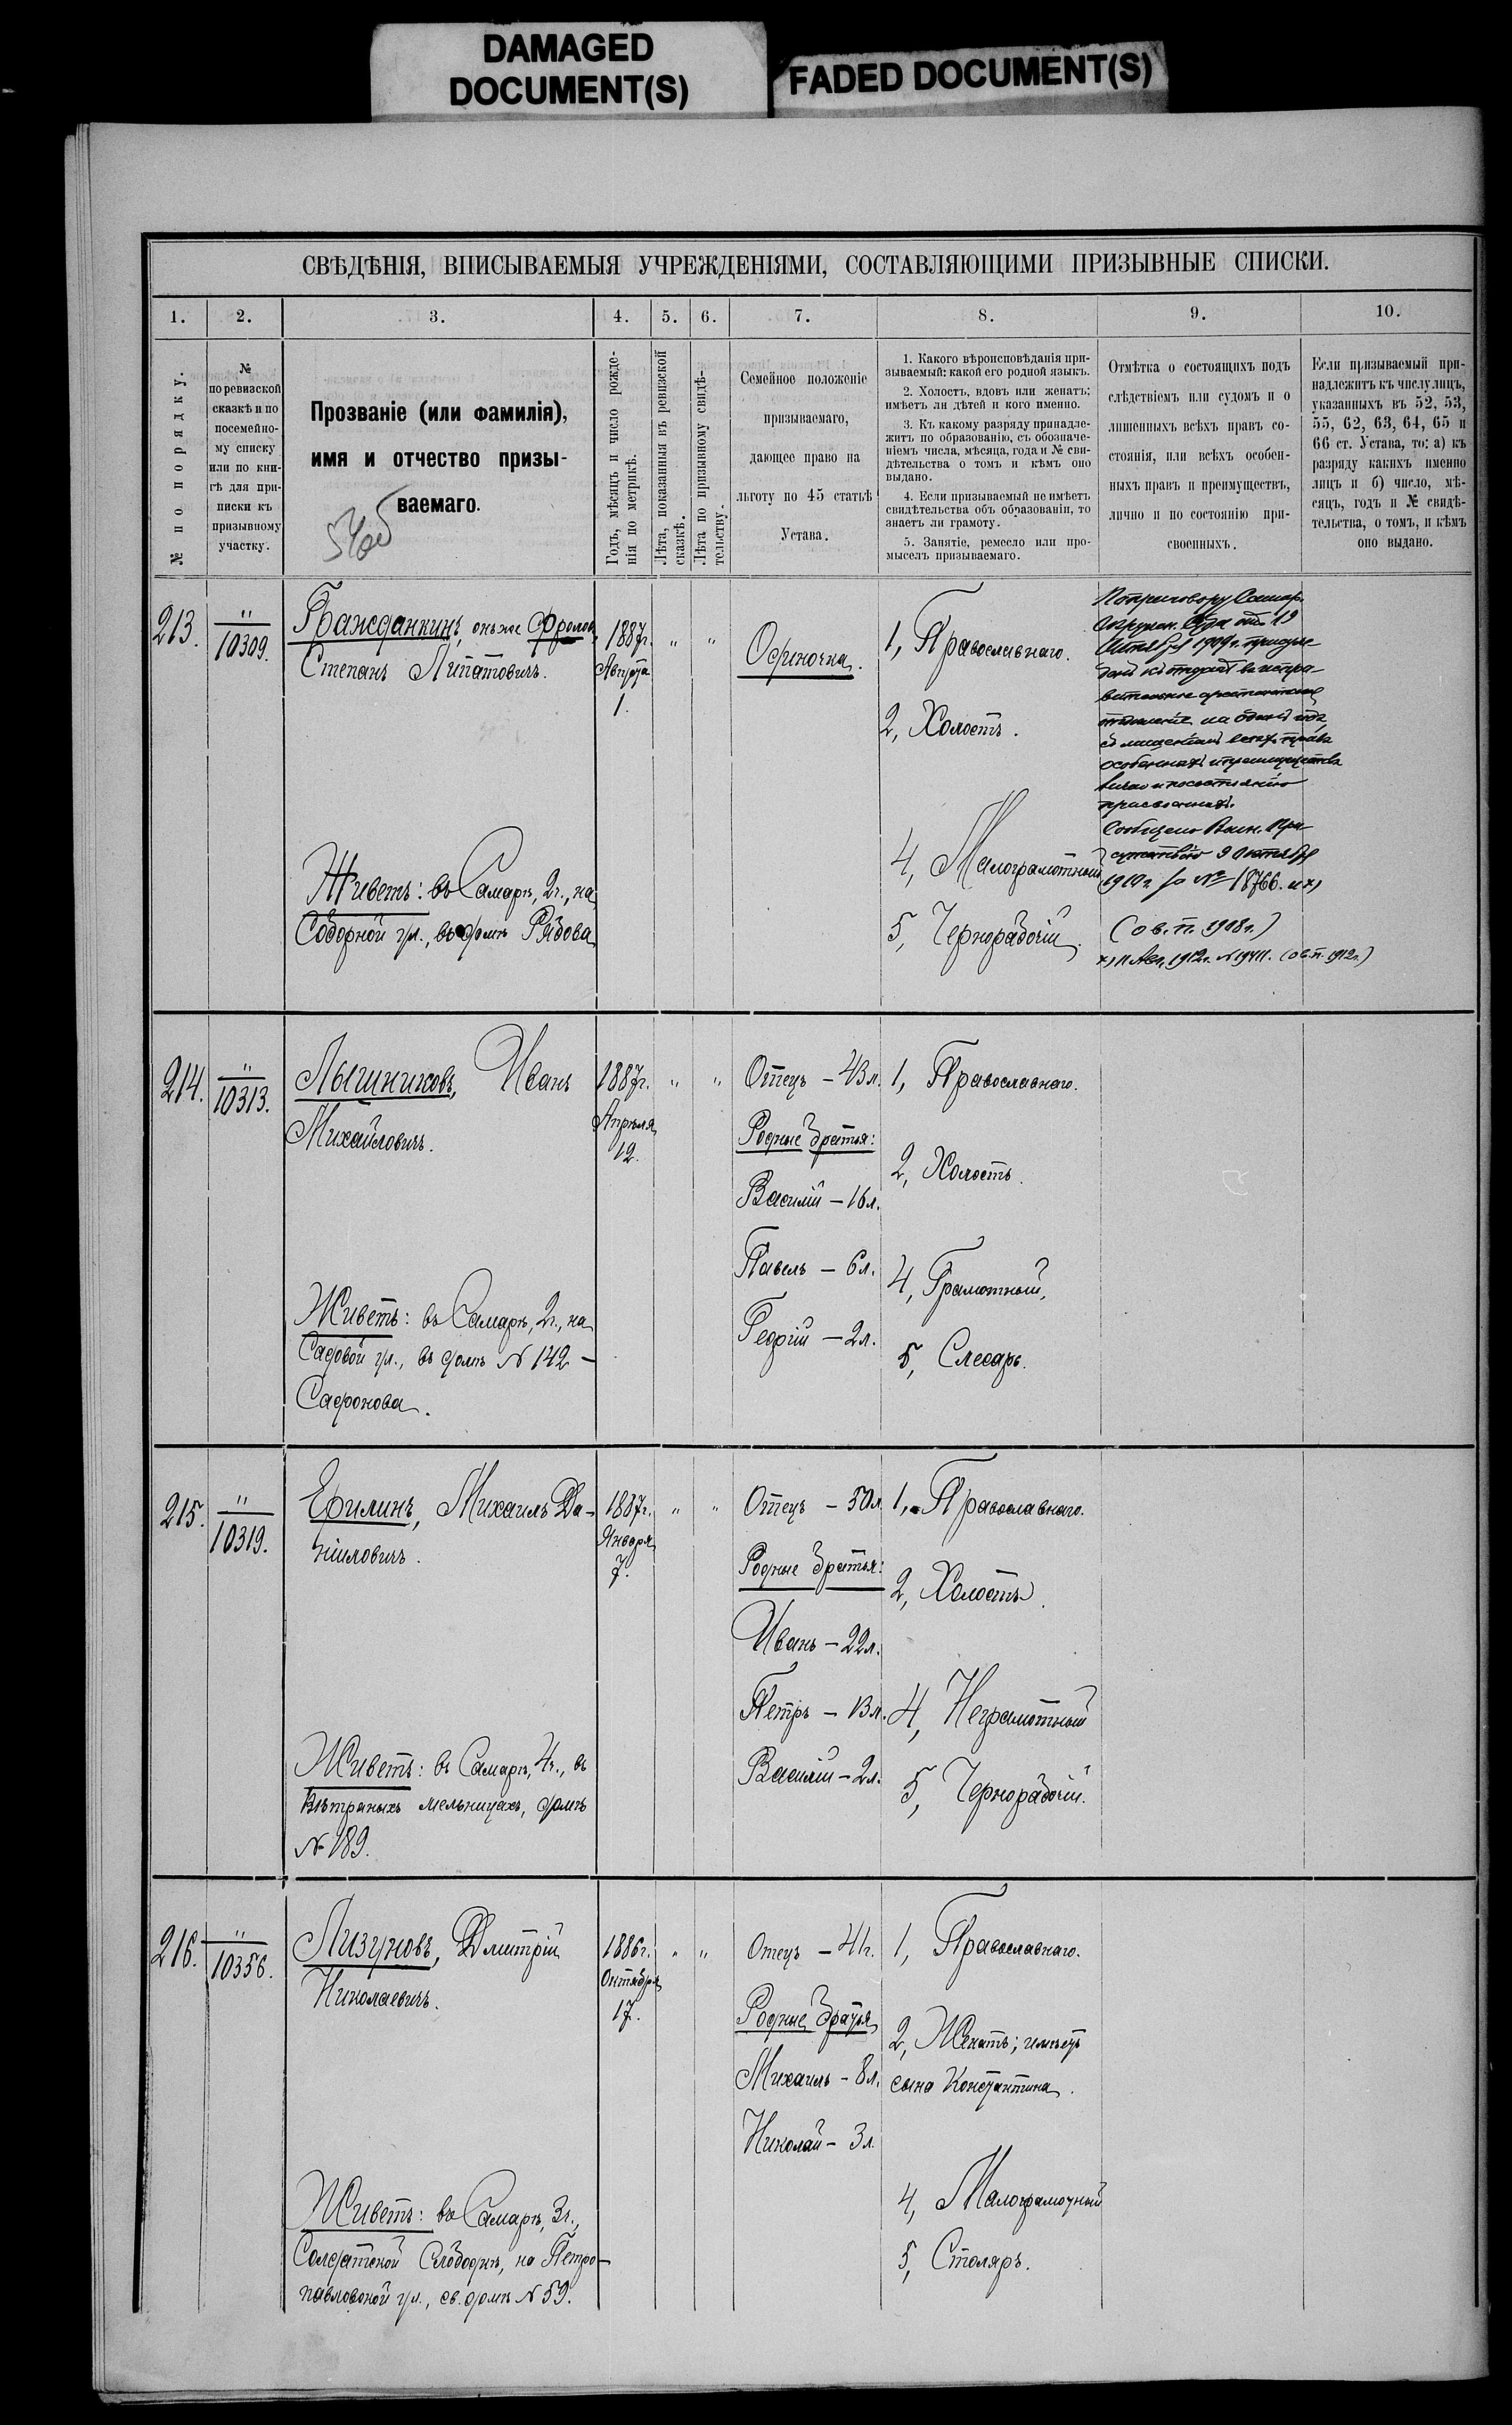 DAMAGED
DOCUMENT(S)
FADED DOCUMENT(S)
СВѢДѢНІЯ, ВПИСЫВАЕМЫЯ УЧРЕЖДЕНІЯМИ, СОСТАВЛЯЮЩИМИ ПРИЗЫВНЫЕ СПИСКИ.
1. 2. 3. 4. 5. 6. 7. 8. 9. 10.
№ по порядку.
№
по ревизской
сказкѣ и по
посемейно-
му списку
или по кни-
гѣ для при-
писки къ
призывному
участку.
Прозваніе (или фамилія),
имя и отчество призы-
ваемаго.
Годъ, мѣсяцъ и число рожде-
нія по метрикѣ.
Лѣта, показанныя въ ревизской
сказкѣ.
Лѣта по призывному свидѣ-
тельству.
Семейное положеніе
призываемаго,
дающее право на
льготу по 45 статьѣ
Устава.
1. Какого вѣроисповѣданія при-
зываемый: какой его родной языкъ.
2. Холостъ, вдовъ или женатъ;
имѣетъ ли дѣтей и кого именно.
3. Къ какому разряду принадле-
житъ по образованію, съ обозначе-
ніемъ числа, мѣсяца, года и № сви-
дѣтельства о томъ и кѣмъ оно
выдано.
4. Если призываемый не имѣетъ
свидѣтельства объ образованіи, то
знаетъ ли грамоту.
5. Занятіе, ремесло или про-
мыселъ призываемаго.
Отмѣтка о состоящихъ подъ
слѣдствіемъ или судомъ и о
лишенныхъ всѣхъ правъ со-
стоянія, или всѣхъ особен-
ныхъ правъ и преимуществъ,
лично и по состоянію при-
своенныхъ.
Если призываемый при-
надлежитъ къ числу лицъ,
указанныхъ въ 52, 53,
55, 62, 63, 64, 65 и
66 ст. Устава, то: а) къ
разряду какихъ именно
лицъ и б) число, мѣ-
сяцъ, годъ и № свидѣ-
тельства, о томъ, и кѣмъ
оно выдано.
213.
"
10309.
Гражданкинъ, онъ же Фроловъ,
Степанъ Липатовичъ.
Живетъ: въ Самарѣ, 2ч., на
Соборной ул., въ домѣ Рядова
1887г.
Августа
1.
" "
Одиночка.
1, Православнаго.
2, Холостъ.
4, Малограмотный
5, Чернорабочій.
По приговору Самар.
Окружн. Суда отъ 19
Октября 1909г.
на одинъ годъ,
съ лишеніемъ всѣхъ правъ
особенныхъ и преимуществъ
лично и по состоянію
присвоенныхъ.
Сообщено Воин. При-
сутствію 9 Октября
1910г. за № 18766. и х)
(о в. п. 1908г.)
х) 11 Авг. 1912г. № 19411. (о в. п. 1912г.)
214.
"
10313.
Лышниковъ, Иванъ
Михайловичъ.
Живетъ: въ Самарѣ, 2ч., на
Садовой ул., въ домѣ № 142 –
Сафонова.
1887г.
Апрѣля
12.
" "
Отецъ – 43л.
Родные братья:
Василій – 16л.
Павелъ – 6л.
Георгій – 2л.
1, Православнаго.
2, Холостъ.
4, Грамотный,
5, Слесарь.
215.
"
10319.
Ефилинъ, Михаилъ Да-
ниловичъ.
Живетъ: въ Самарѣ, 4ч., въ
Вѣтряныхъ мельницахъ, домъ
№ 189.
1887г.
Января
7.
" "
Отецъ – 50л.
Родные братья:
Иванъ – 22л.
Петръ – 13л.
Василій – 2л.
1, Православнаго.
2, Холостъ.
4, Неграмотный
5, Чернорабочій.
216.
"
10356.
Лизуновъ, Дмитрій
Николаевичъ.
Живетъ: въ Самарѣ, 3ч.,
Солдатской Слободкѣ, на Петро-
павловской ул., св. домъ № 59.
1886г.
Октября
17.
" "
Отецъ – 41г.
Родные братья
Михаилъ – 8л.
Николай – 3л.
1, Православнаго.
2, Женатъ; имѣетъ
сына Константина.
4, Малограмотный
5, Столяръ.